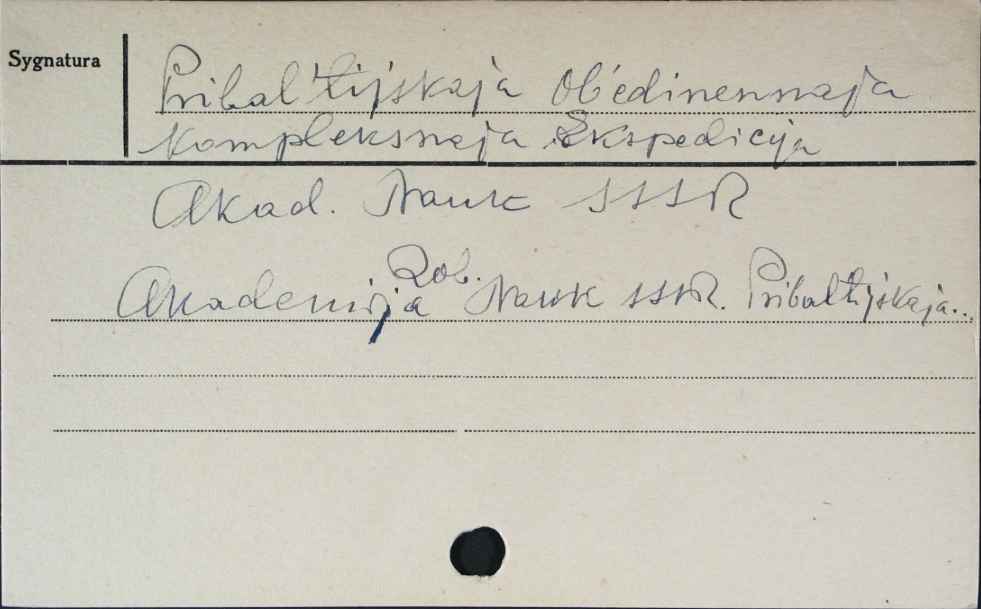 Sygnatura
Pribal'tijskaja Ob'edinennaja
Kompleksnaja Ekspedicija
Akad. Nauk SSSR
Zob.
Akademija Nauk SSSR. Pribaltijskaja...